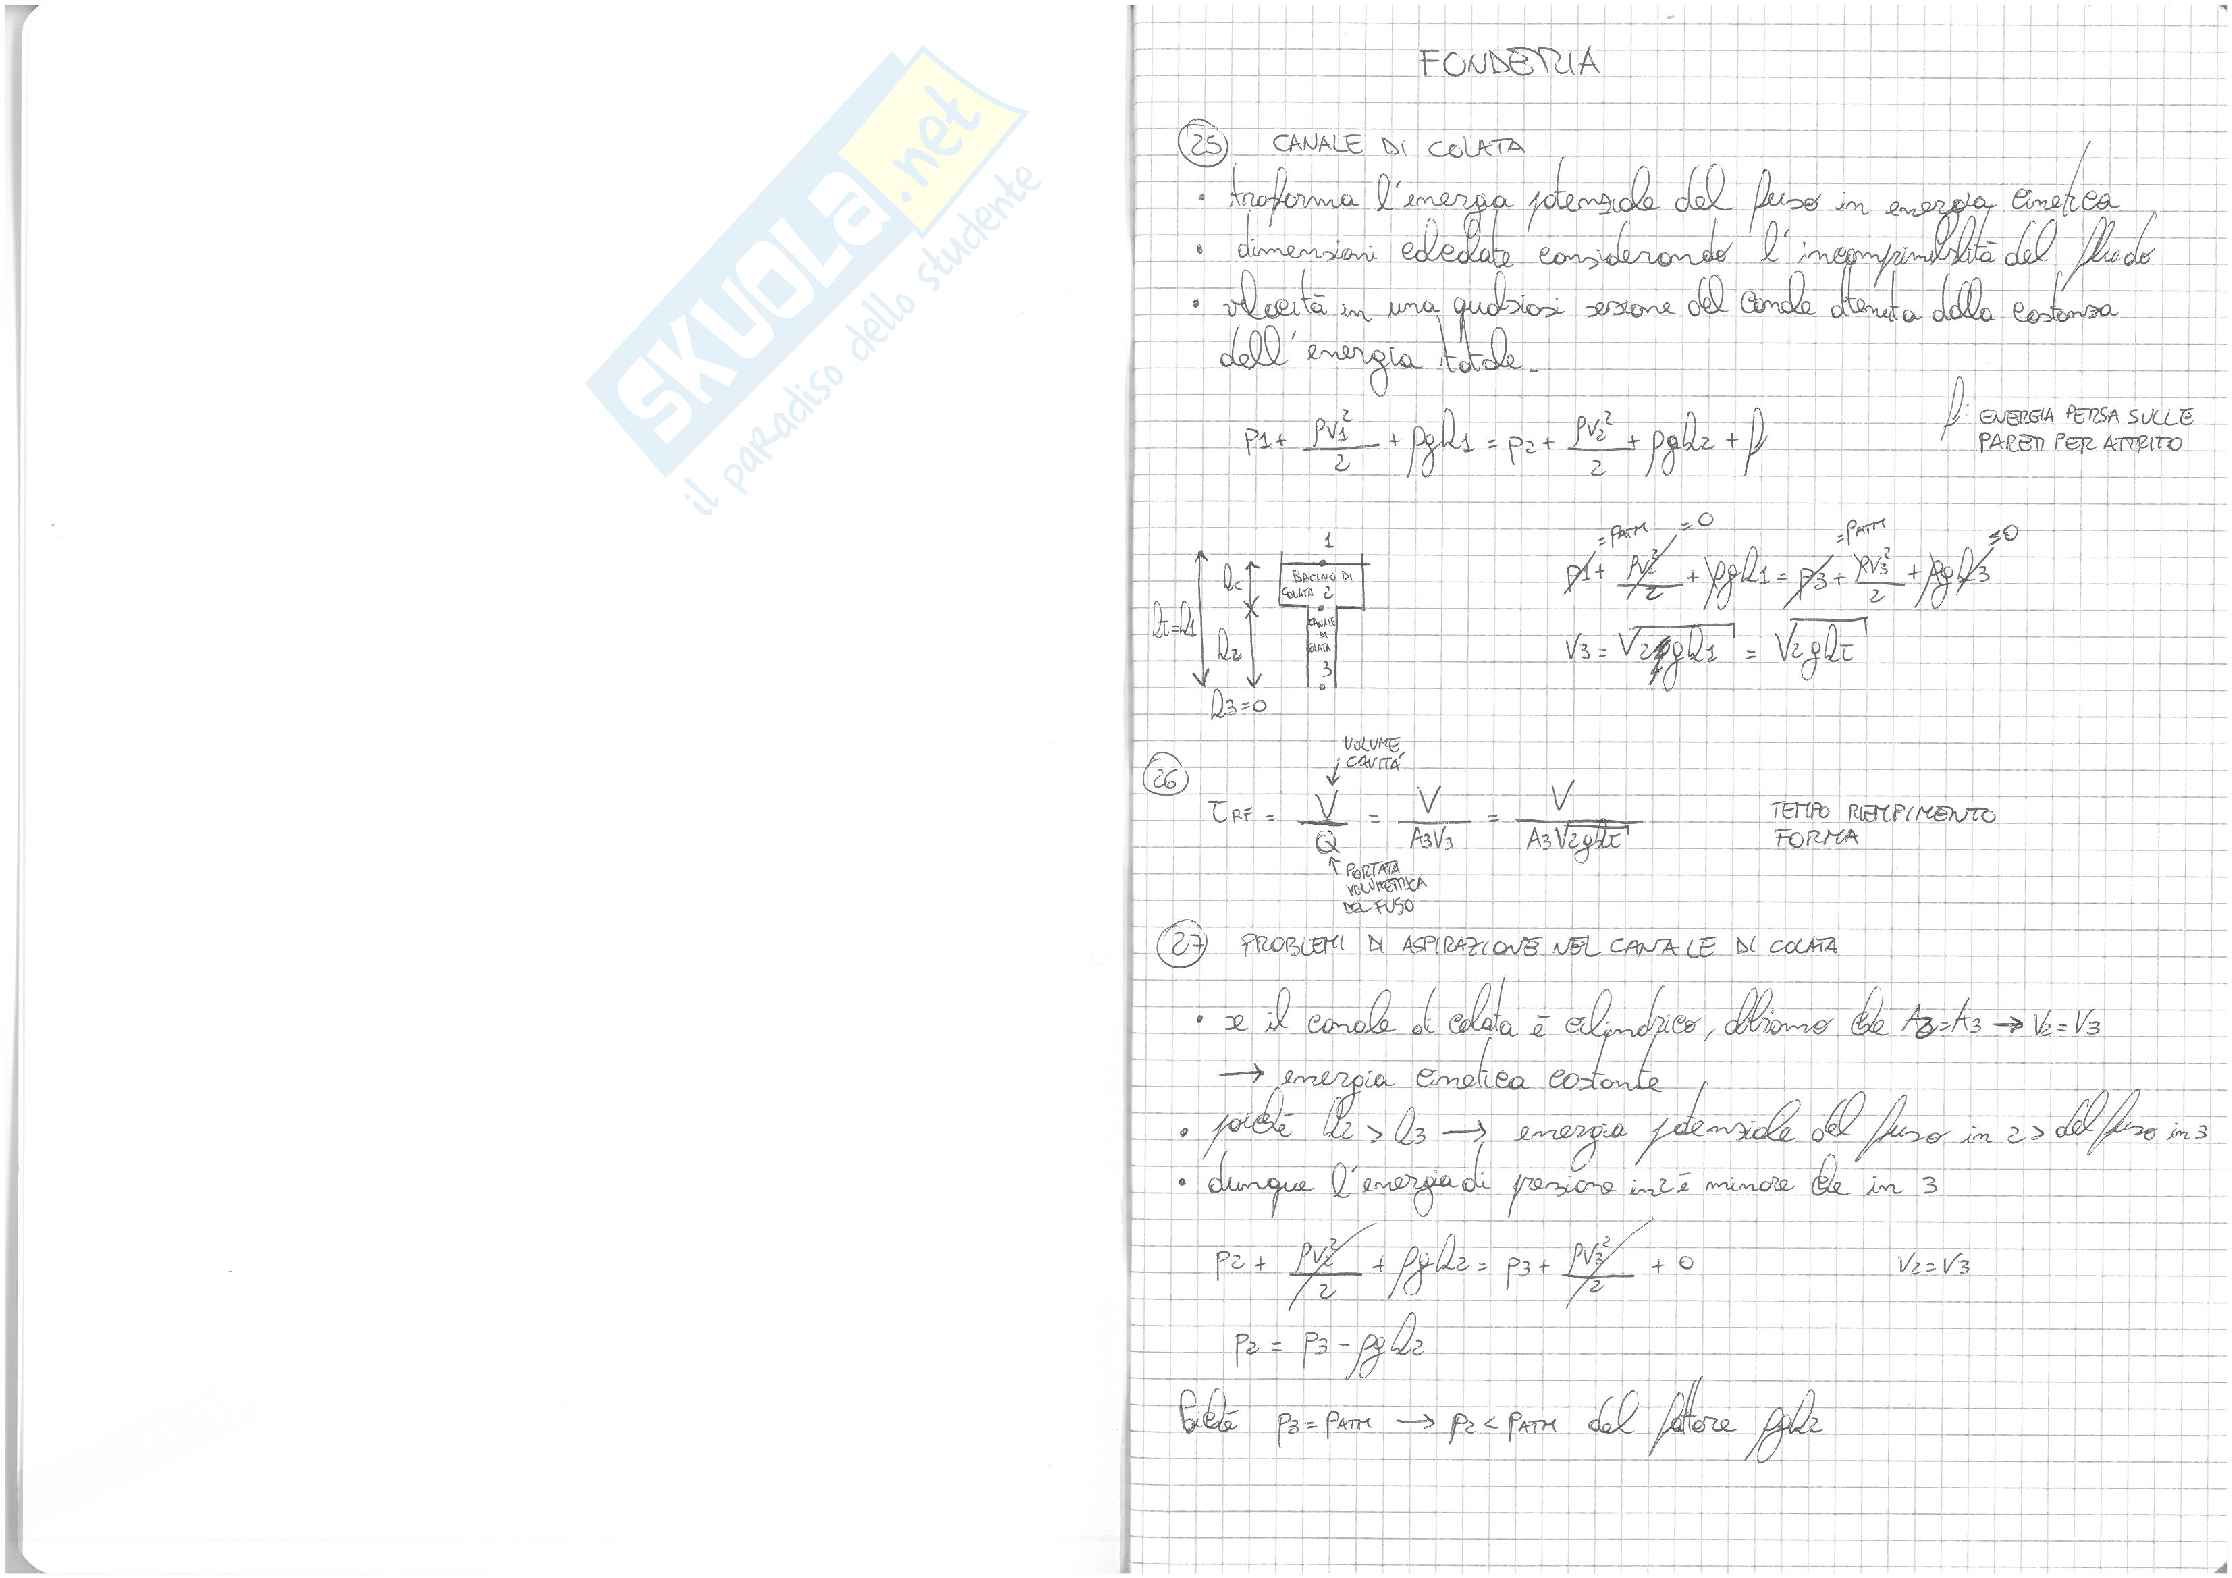 SKUOLA.net
il paradiso dello studente
FONDERIA
25 CANALE DI COLATA
• trasforma l'energia potenziale del fuso in energia cinetica
• dimensioni calcolate considerando l'incomprimibilità del fluido
• velocità in una qualsiasi sezione del canale ottenuta dalla costanza
dell'energia totale.
p1 + ρv1²/2 + ρgh1 = p2 + ρv2²/2 + ρgh2 + f
f: ENERGIA PERSA SULLE
PARETI PER ATTRITO
1
BACINO DI
COLATA 2
CANALE
DI
COLATA
3
hc
ht=h1
h2
h3=0
=PATM =0 =PATM =0
p1 + ρv1²/2 + ρgh1 = p3 + ρv3²/2 + ρgh3
v3 = √2ρgh1 = √2ght
26
VOLUME
CAVITÁ
τRF = V/Q = V/A3v3 = V/A3√2ght
TEMPO RIEMPIMENTO
FORMA
PORTATA
VOLUMETRICA
DEL FUSO
27 PROBLEMI DI ASPIRAZIONE NEL CANALE DI COLATA
• se il canale di colata è cilindrico, abbiamo che A2=A3 → v2=v3
→ energia cinetica costante
• poiché h2 > h3 → energia potenziale del fuso in 2 > del fuso in 3
• dunque l'energia di pressione in 2 è minore che in 3
p2 + ρv2²/2 + ρgh2 = p3 + ρv3²/2 + 0
v2=v3
p2 = p3 - ρgh2
Poiché p3=PATM → p2 < PATM del fattore ρgh2